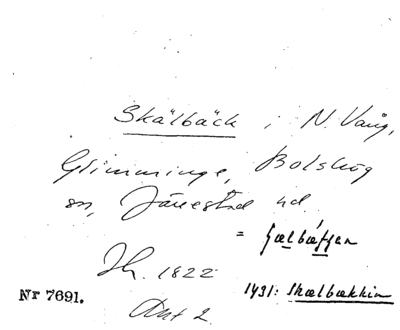 Skälbäck i N. Vång,
Glimminge, Bolshög
sn, Järrestad hd.
=
Jh. 1822
1431: Skælbækkin
Nr 7691.
Ant 2.